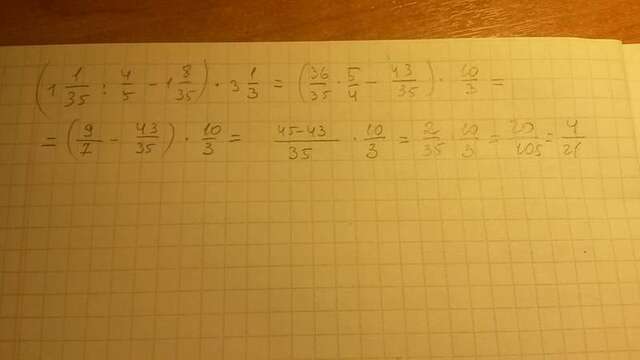 (1 1/35 : 4/5 - 1 8/35) · 3 1/3 = (36/35 · 5/4 - 43/35) · 10/3 =
= (9/7 - 43/35) · 10/3 = 45-43/35 · 10/3 = 2/35 · 10/3 = 20/105 = 4/21